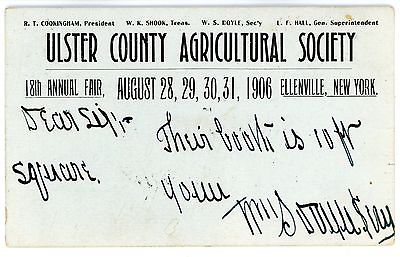 R. T. COOKINGHAM, President   W. K. SHOOK, Treas.   W. S. DOYLE, Sec'y   L. F. HALL, Gen. Superintendent
ULSTER COUNTY AGRICULTURAL SOCIETY
18th ANNUAL FAIR, AUGUST 28, 29, 30, 31, 1906 ELLENVILLE, NEW YORK.
Dear Sir,-
Their booth is 10 ft
square.
Yours
Wm S Doyle Secy